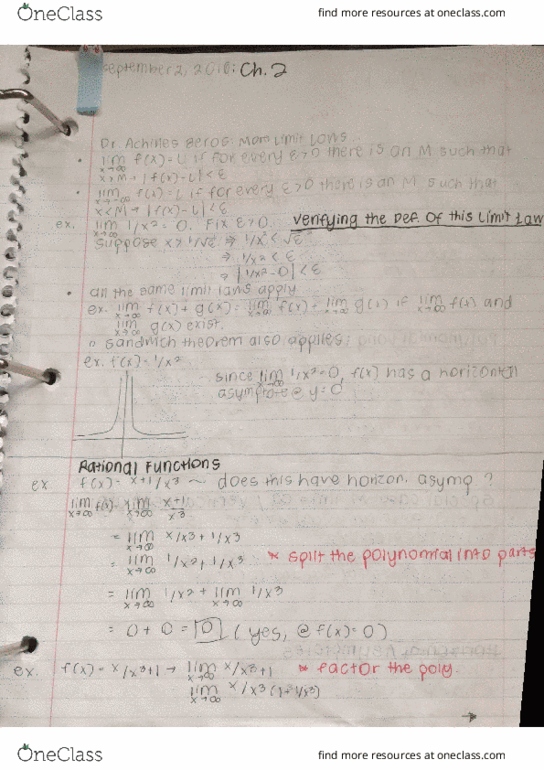 OneClass find more resources at oneclass.com
September 2, 2016: Ch. 2
Dr. Achilles Beros: More Limit Laws
• lim x→∞ f(x) = L if for every ε>0 there is an M such that
x>M → |f(x)-L|<ε
• lim f(x) = L if for every ε>0 there is an M such that
x<M → |f(x)-L|<ε
ex. lim x→∞ 1/x² = 0. Fix ε>0. Verifying the Def. of this Limit Law
suppose x > 1/√ε ⇒ 1/x < √ε
⇒ 1/x² < ε
⇒ |1/x² - 0| < ε
• all the same limit laws apply
ex. lim x→∞ f(x) + g(x) = lim x→∞ f(x) + lim x→∞ g(x) if lim x→∞ f(x) and
lim x→∞ g(x) exist.
sandwich theorem also applies:
ex. f(x) = 1/x²
since lim x→∞ 1/x² = 0, f(x) has a horizontal
asymptote @ y = 0
Rational Functions
ex. f(x) = x+1/x³ ~ does this have horizon. asymp ?
lim x→∞ f(x) = lim x→∞ x+1/x³
= lim x→∞ x/x³ + 1/x³
= lim x→∞ 1/x² + 1/x³ * split the polynomial into parts
= lim x→∞ 1/x² + lim x→∞ 1/x³
= 0 + 0 = 0 (yes, @ f(x) = 0)
ex. f(x) = x/x³+1 → lim x→∞ x/x³+1 * factor the poly.
lim x→∞ x/x³(1+1/x³)
→
OneClass find more resources at oneclass.com